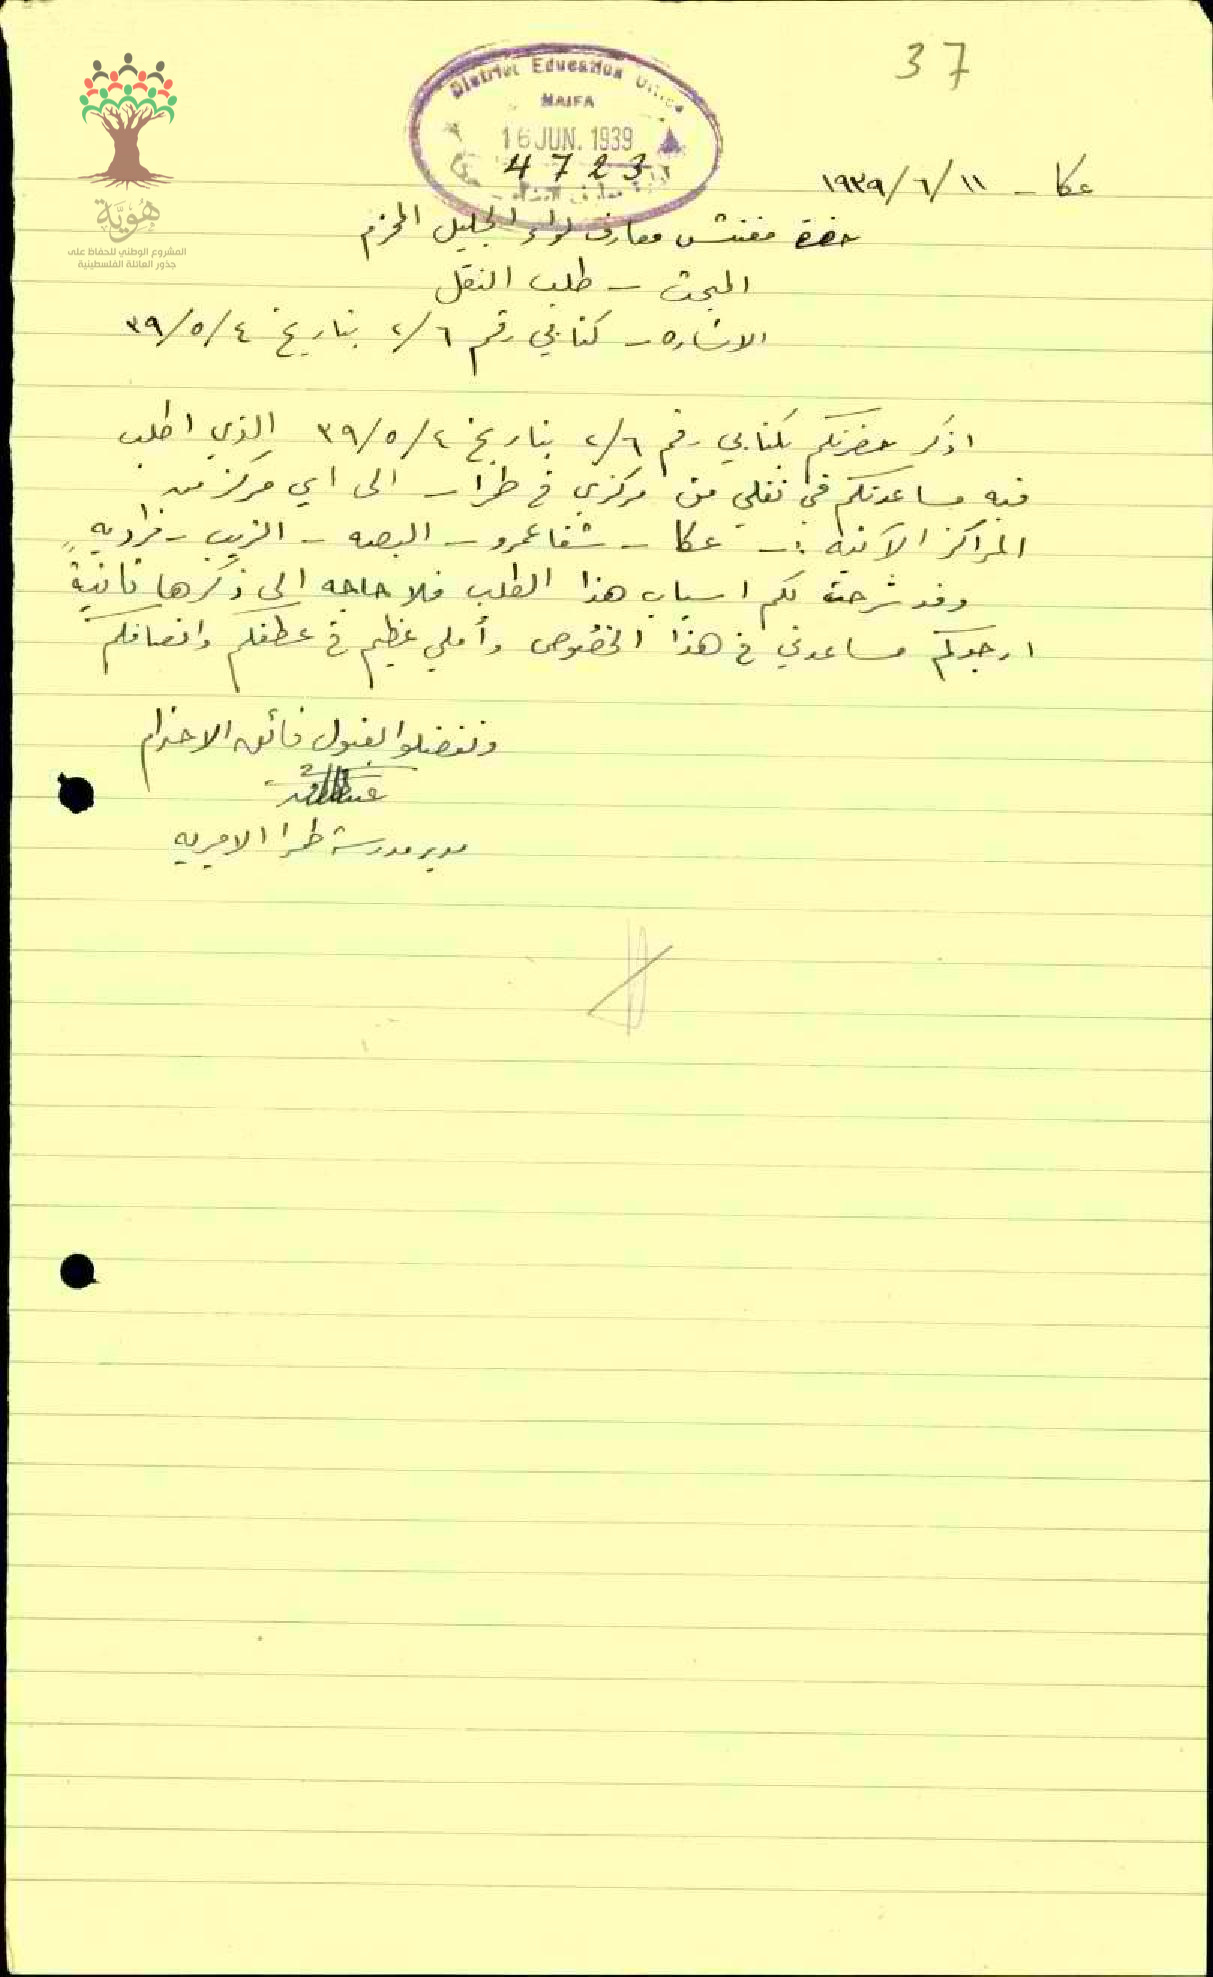 37
District Education Office
HAIFA
16 JUN. 1939
4723
هُوِيَّة
المشروع الوطني للحفاظ على
جذور العائلة الفلسطينية
عكا - ١١/ ٦/ ١٩٣٩
حضرة مفتش معارف لواء الجليل المحترم
المبحث - طلب النقل
الاشاره - كتابي رقم ٢/٦ بتاريخ ٣٩/٥/٤
اذكر حضرتكم بكتابي رقم ٢/٦ بتاريخ ٣٩/٥/٤ الذي اطلب
فيه مساعدتكم في نقلي من مركزي في طمرا - الى اي مركز من
المراكز الآتيه :- عكا - شفاعمرو - البصه - الزيب - فراديه
وقد شرحت لكم اسباب هذا الطلب فلا حاجه الى ذكرها ثانيةً
ارجوكم مساعدتي في هذا الخصوص وأملي عظيم في عطفكم وانصافكم
وتفضلوا بقبول فائق الاحترام
مدير مدرسة طمرا الاميريه